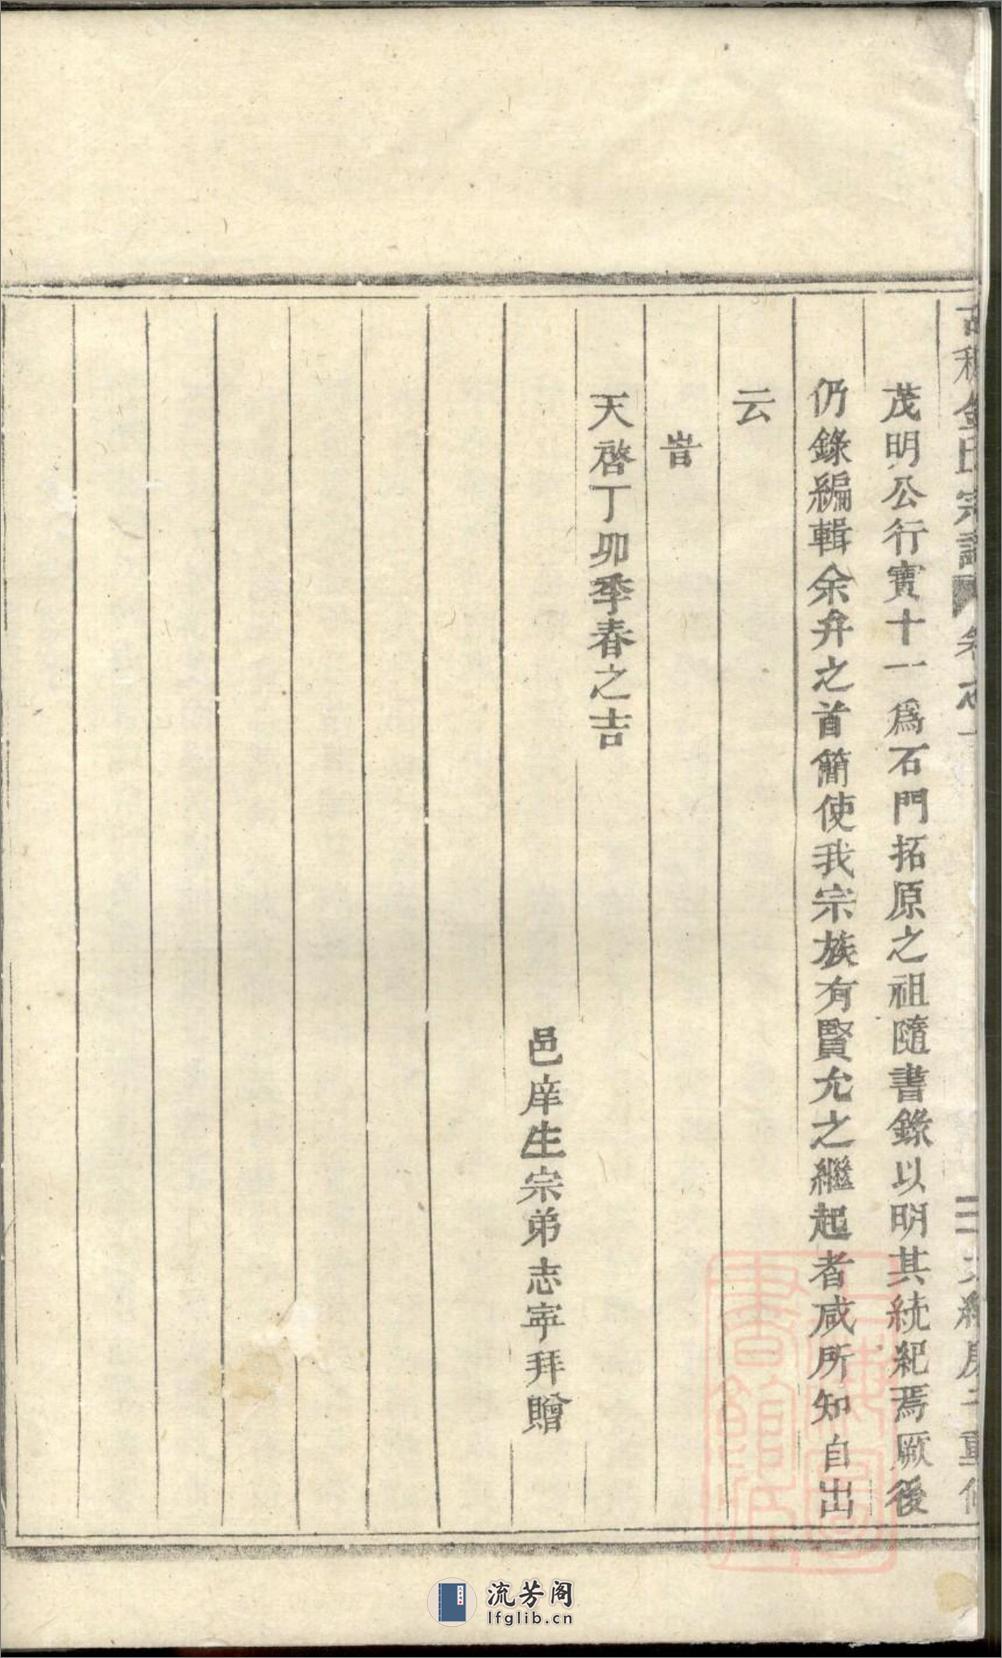 茂明公行實十一爲石門拓原之祖隨書錄以明其統紀焉厥後
仍錄編輯余弁之首簡使我宗族有賢允之繼起者咸所知自出
云
旹
天啓丁卯季春之吉
邑庠生宗弟志寧拜贈
金氏宗譜
流芳阁
lfglib.cn